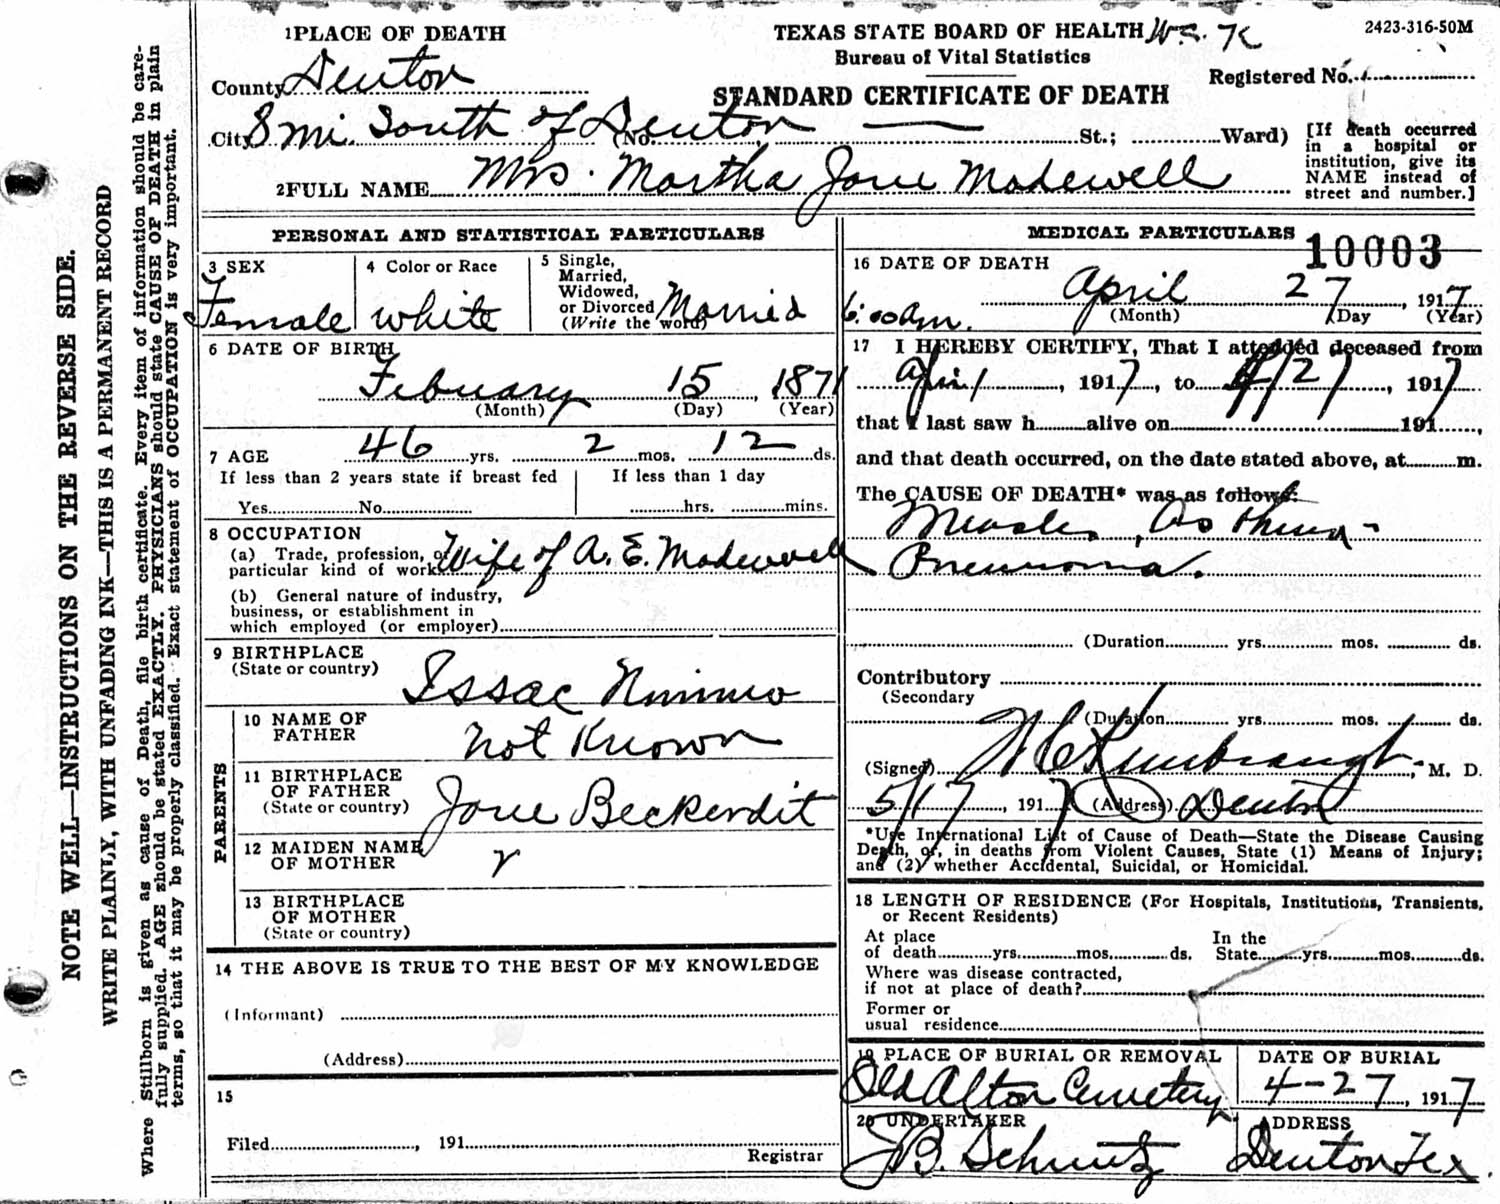 1PLACE OF DEATH
TEXAS STATE BOARD OF HEALTH
2423-316-50M
Bureau of Vital Statistics
County Denton
Registered No.
STANDARD CERTIFICATE OF DEATH
City 8 mi. South of Denton (No. St.; Ward)
[If death occurred
in a hospital or
institution, give its
NAME instead of
street and number.]
2FULL NAME Mrs. Martha Jane Madewell
PERSONAL AND STATISTICAL PARTICULARS
3 SEX
Female
4 Color or Race
white
5 Single,
Married,
Widowed,
or Divorced
(Write the word)
Married
6 DATE OF BIRTH
Febuary 15, 1871
(Month) (Day) (Year)
7 AGE 46 yrs. 2 mos. 12 ds.
If less than 2 years state if breast fed
Yes No
If less than 1 day
hrs. mins.
8 OCCUPATION
(a) Trade, profession, or
particular kind of work Wife of A. E. Madewell
(b) General nature of industry,
business, or establishment in
which employed (or employer)
9 BIRTHPLACE
(State or country)
Issac Nimmo
PARENTS
10 NAME OF
FATHER
not Known
11 BIRTHPLACE
OF FATHER
(State or country)
Jane Beckendit
12 MAIDEN NAME
OF MOTHER
13 BIRTHPLACE
OF MOTHER
(State or country)
14 THE ABOVE IS TRUE TO THE BEST OF MY KNOWLEDGE
(Informant)
(Address)
15
Filed , 191
Registrar
MEDICAL PARTICULARS
10003
16 DATE OF DEATH
April 27, 1917
6:00 am.
(Month) (Day (Year)
17 I HEREBY CERTIFY, That I attended deceased from
April, 1917, to 4/27, 1917
that I last saw h alive on 191 ,
and that death occurred, on the date stated above, at m.
The CAUSE OF DEATH* was as follows:
Measles, Asthma-
Pneumonia.
(Duration yrs. mos. ds.
Contributory
(Secondary
(Duration yrs. mos. ds.
(Signed) M C Kimbraugh, M. D.
5/17, 1917 (Address) Denton
*Use International List of Cause of Death—State the Disease Causing
Death, or, in deaths from Violent Causes, State (1) Means of Injury;
and (2) whether Accidental, Suicidal, or Homicidal.
18 LENGTH OF RESIDENCE (For Hospitals, Institutions, Transients,
or Recent Residents)
At place
of death yrs. mos. ds.
In the
State yrs. mos. ds.
Where was disease contracted,
if not at place of death?
Former or
usual residence
19 PLACE OF BURIAL OR REMOVAL
Old Alton Cemetery
DATE OF BURIAL
4-27, 1917
20 UNDERTAKER
J B. Schmitz
ADDRESS
Denton Tex.
NOTE WELL—INSTRUCTIONS ON THE REVERSE SIDE.
WRITE PLAINLY, WITH UNFADING INK—THIS IS A PERMANENT RECORD
Where Stillborn is given as cause of Death, file birth certificate. Every item of information should be care-
fully supplied. AGE should be stated EXACTLY. PHYSICIANS should state CAUSE OF DEATH in plain
terms, so that it may be properly classified. Exact statement of OCCUPATION is very important.